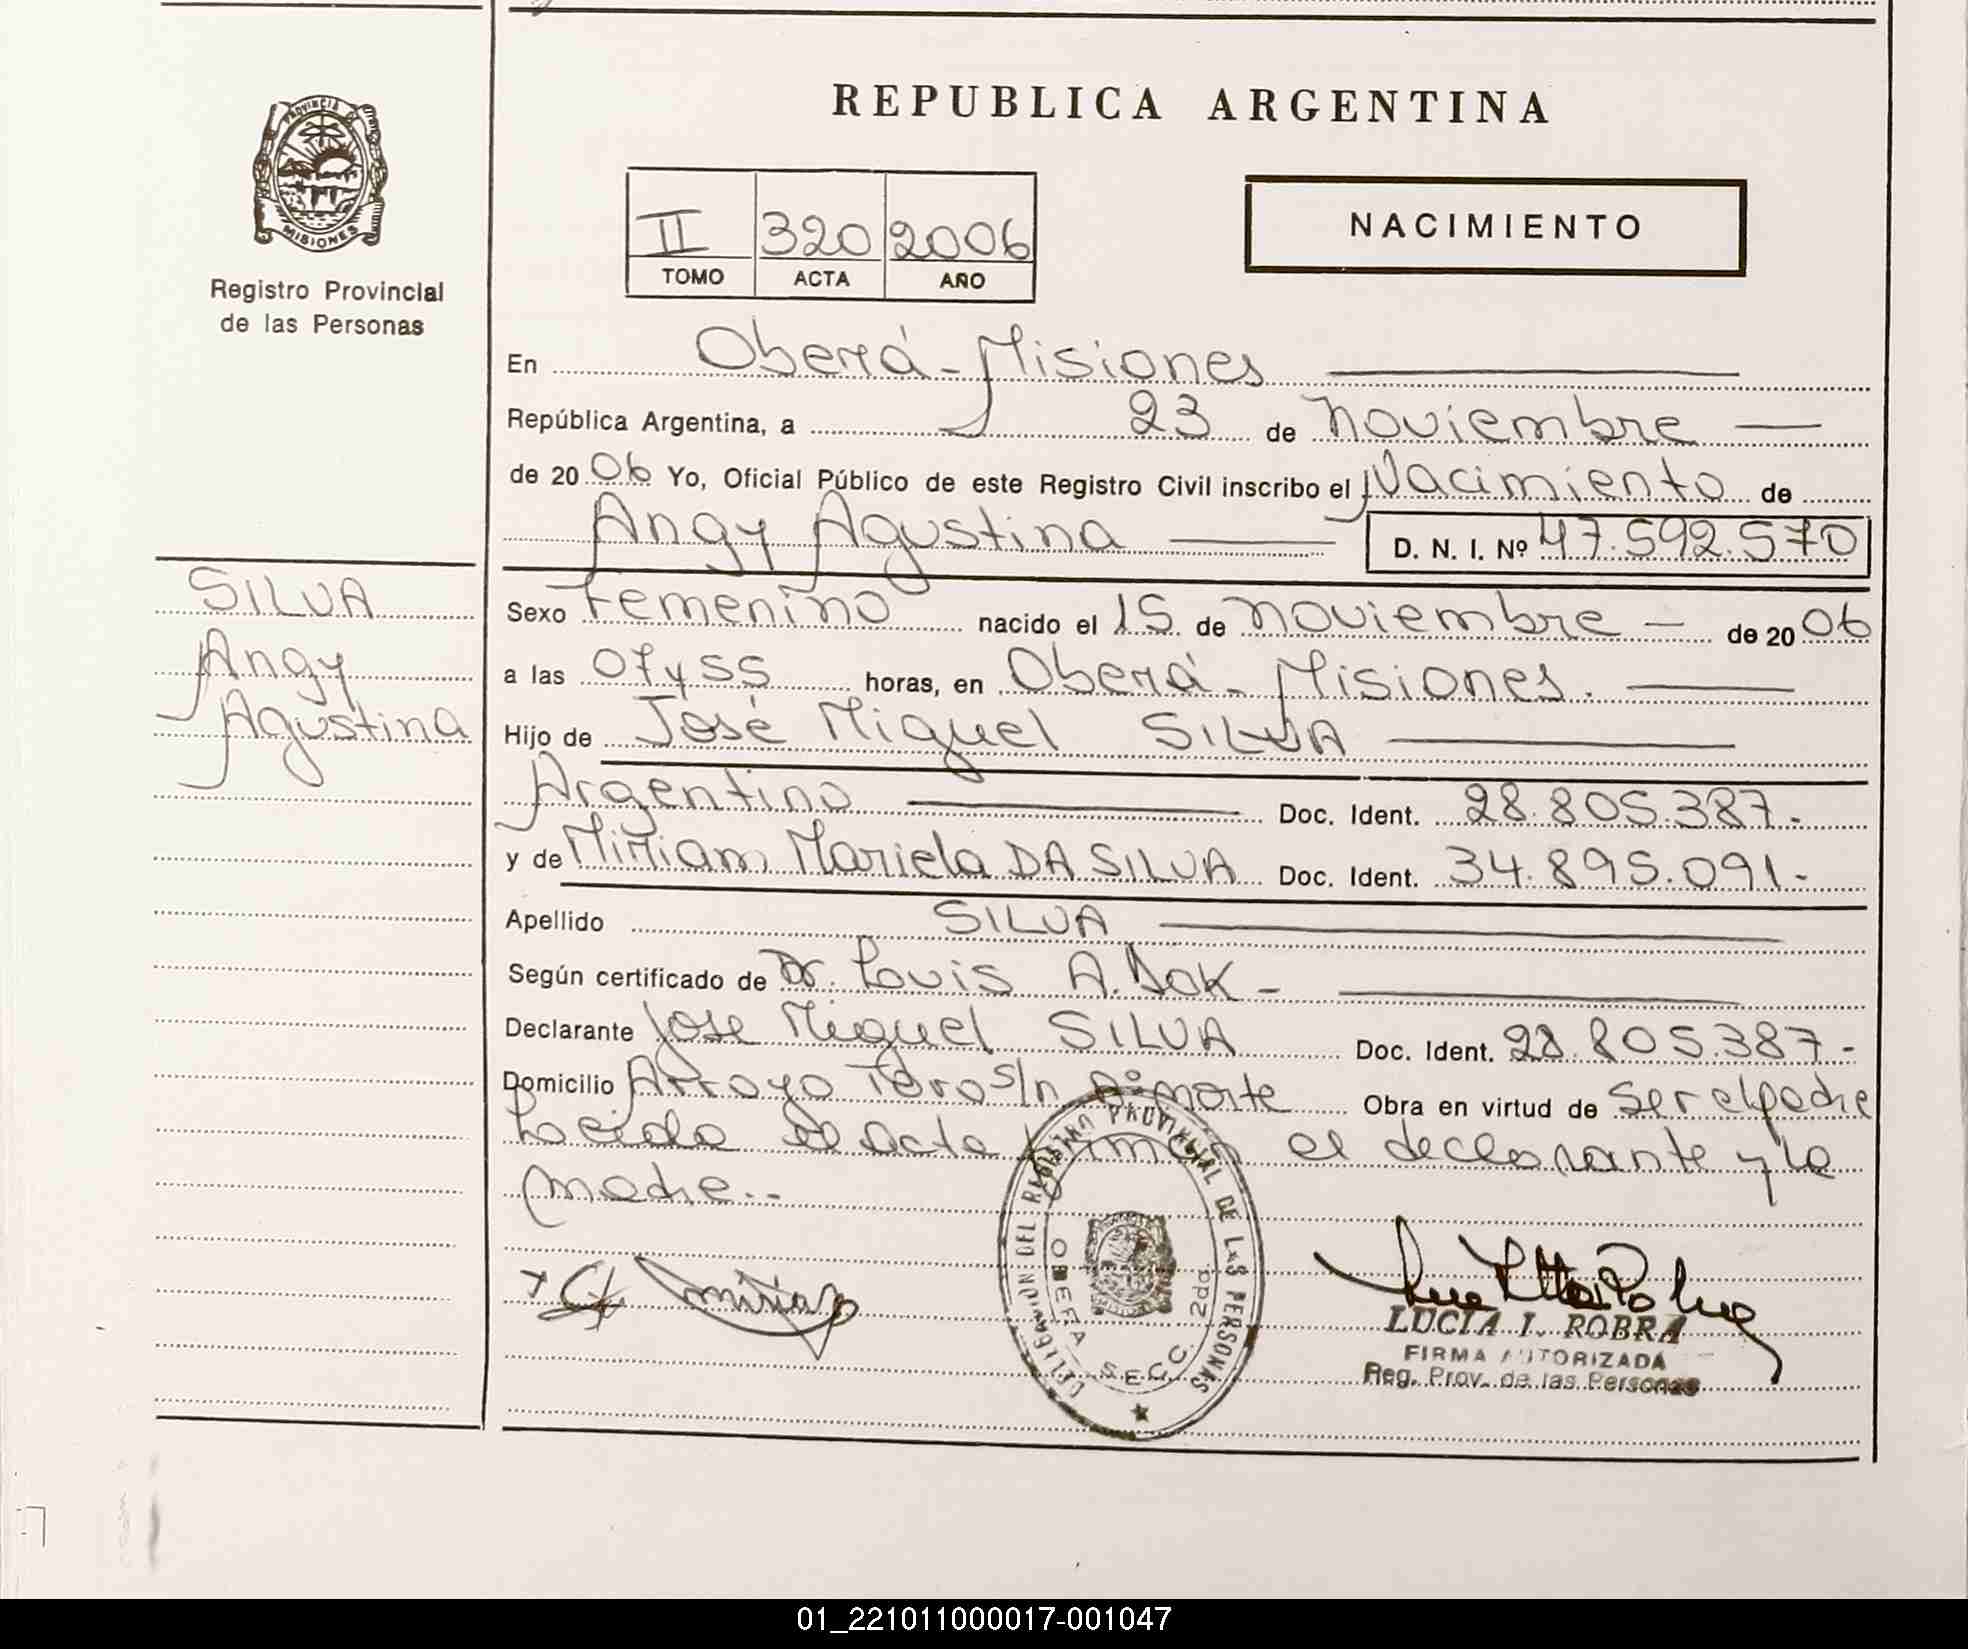 REPUBLICA ARGENTINA
PROVINCIA DE
MISIONES
Registro Provincial
de las Personas
II 320 2006
TOMO ACTA AÑO
NACIMIENTO
En Oberá - Misiones
República Argentina, a 23 de Noviembre
de 2006 Yo, Oficial Público de este Registro Civil inscribo el Nacimiento de
Angy Agustina D. N. I. Nº 47.592.570
SILVA
Angy
Agustina
Sexo Femenino nacido el 15 de Noviembre de 2006
a las 07 y 55 horas, en Oberá - Misiones.
Hijo de José Miguel SILVA
Argentino Doc. Ident. 28.805.387.-
y de Miriam Mariela DA SILVA Doc. Ident. 34.895.091.-
Apellido SILVA
Según certificado de Dr. Louis A. Dok -
Declarante Jose Miguel SILVA Doc. Ident. 28.805.387-
Domicilio Arroyo Toro s/n Obra en virtud de ser el padre
Leida el acta firman el declarante y la
madre.-
miriam
DELEGACION DEL REGISTRO PROVINCIAL DE LAS PERSONAS
OBERA SECC. 2da
LUCIA I. ROBRA
FIRMA AUTORIZADA
Reg. Prov. de las Personas
01_221011000017-001047